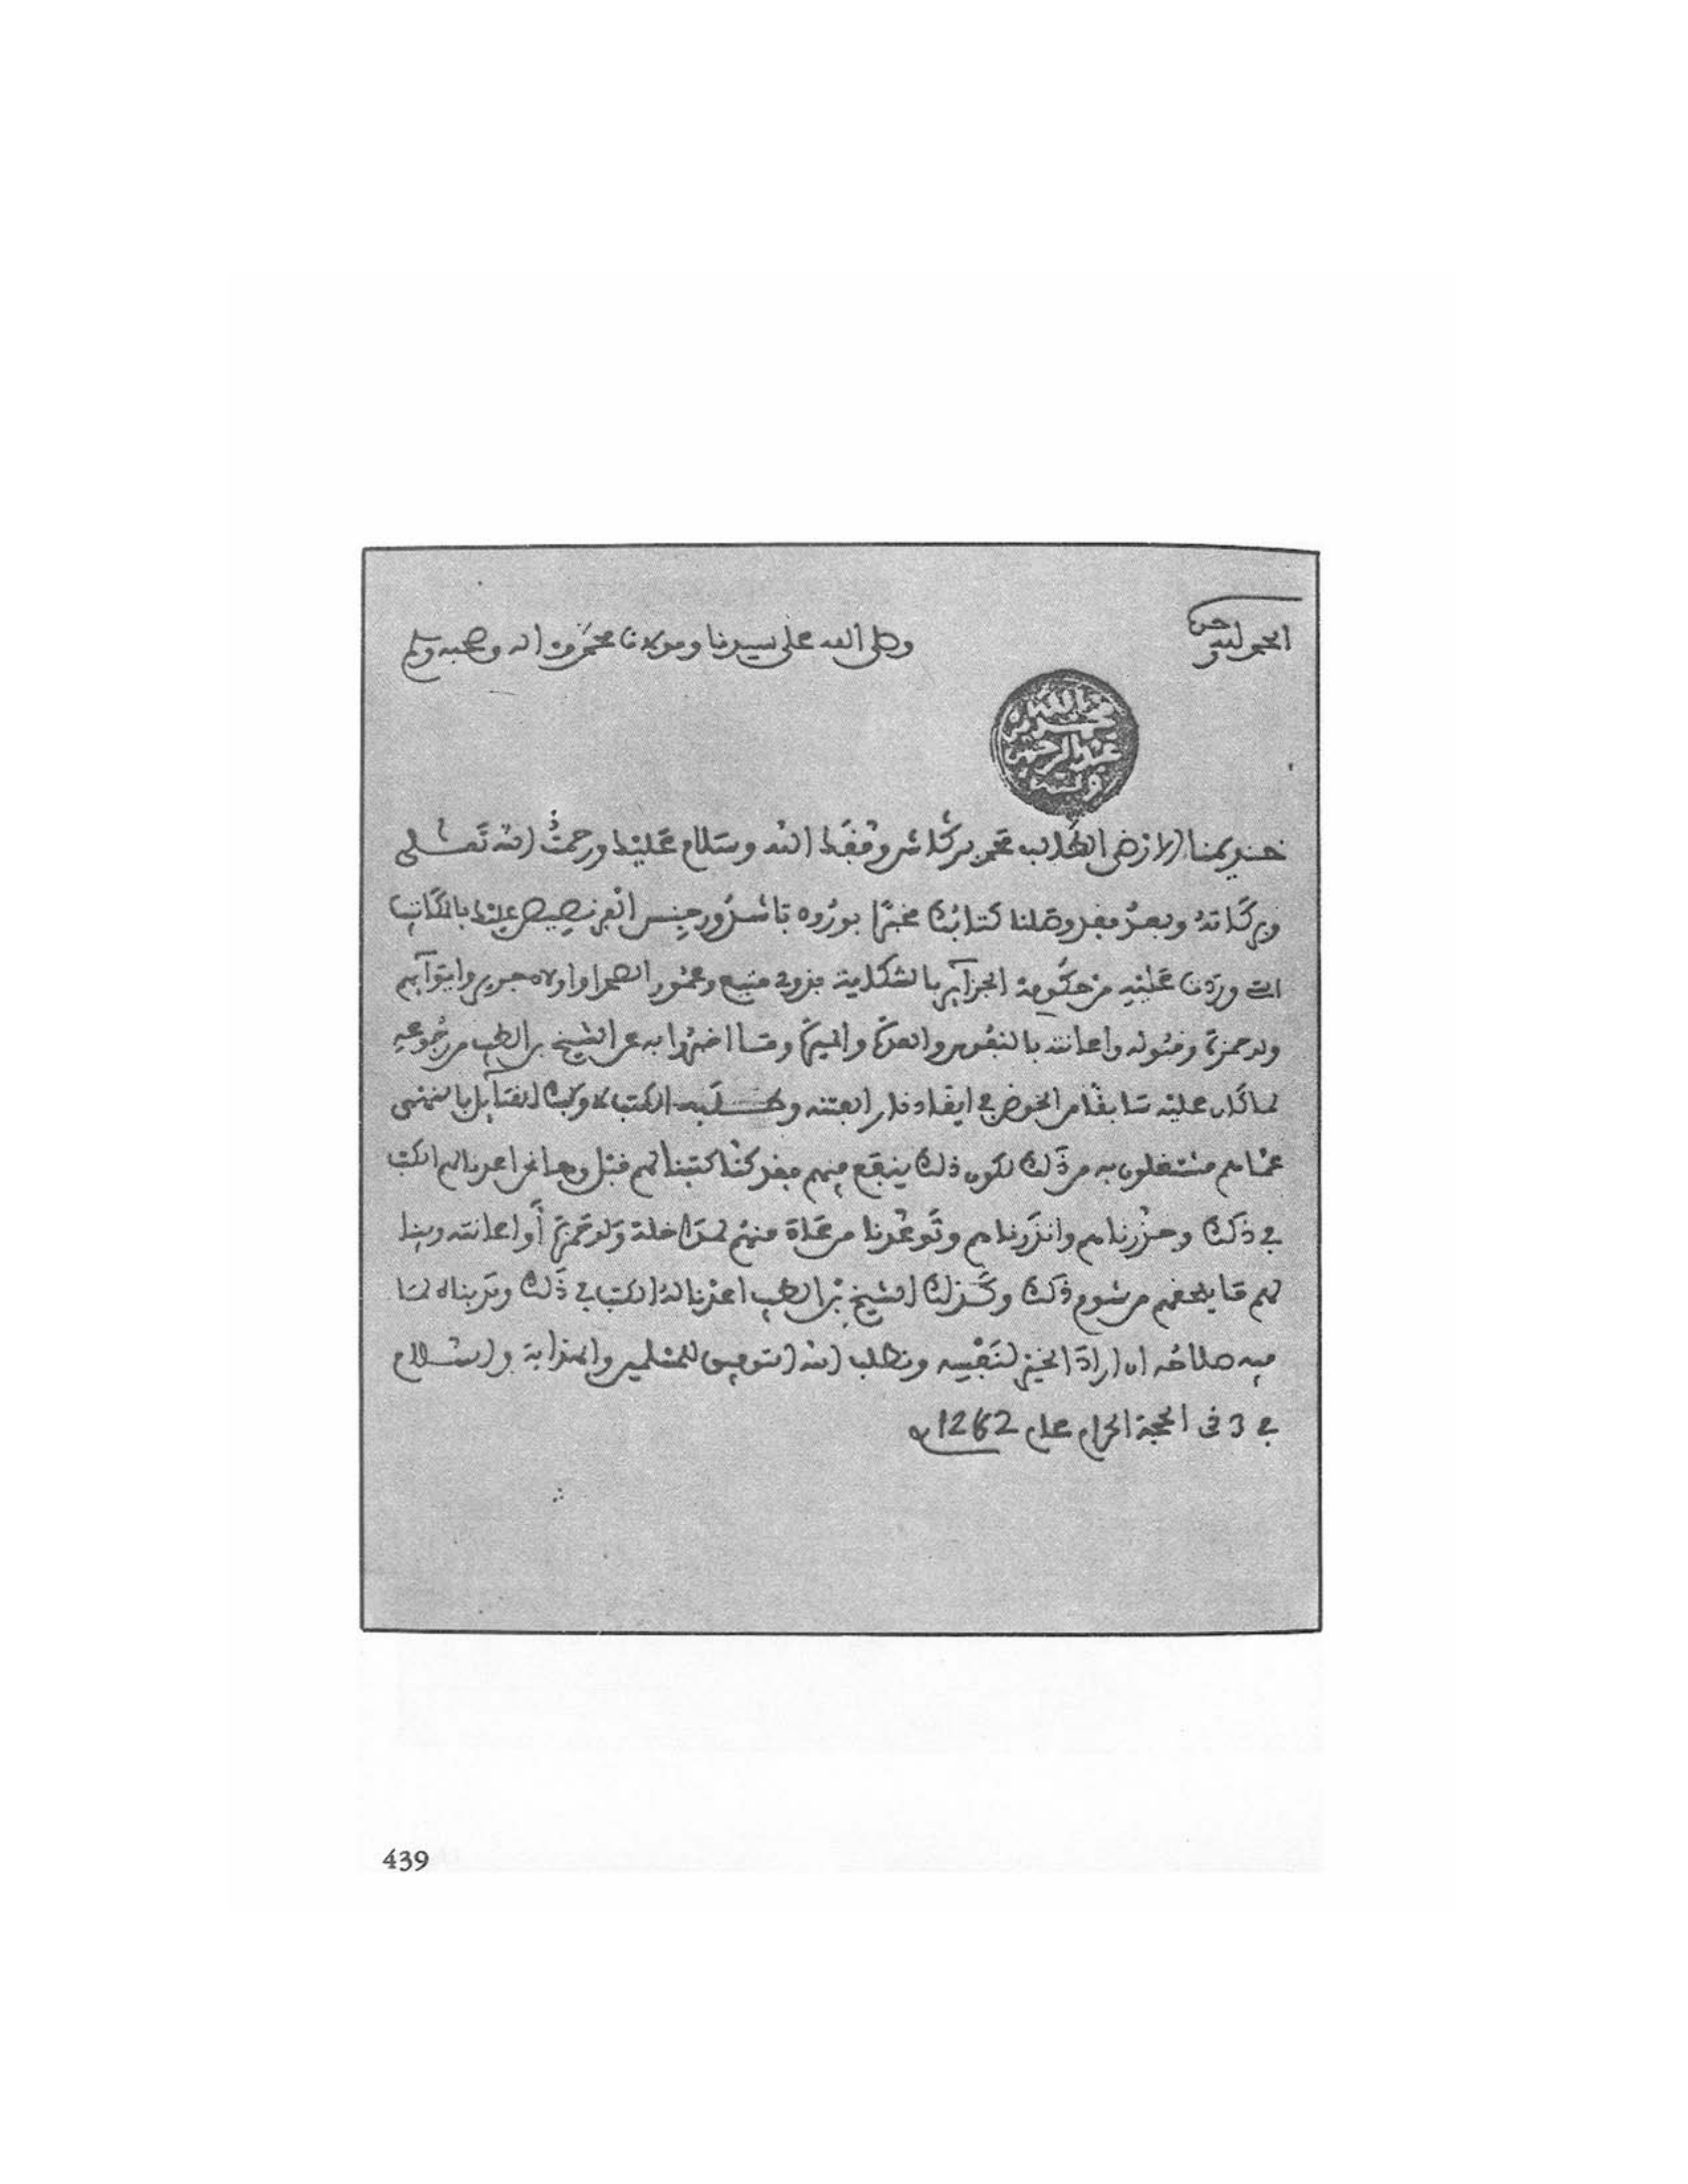 الحمد لله وحده
وصلى الله على سيدنا ومولانا محمد وءاله وصحبه وسلم
الله محمد بن عبد الرحمن وليه
خديمنا الارضى الطالب محمد بركاش وفقك الله وسلام عليك ورحمت الله تعالى
وبركاته وبعد فقد وصلنا كتابك مخبرا بورود باشدور جنس عليك بالمكاتيب
التي وردت عليه من حكومة الجزاير بالشكاية بذوي منيع وعمور الصحرا واولاد جرير
ولد حمزة وقبوله واعانته بالنفوس والعدة والميرة وما اخبروا به عن الشيخ بن الطيب من رجوعه
لما كان عليه سابقا من الخوض في ايقاد نار الفتنة وطلبه الكتب لاولئك القبايل بالنهي
عما هم مشتغلون به من ذلك لكون ذلك ينفع فيهم فقد كنا كتبنا لهم قبل وها نحن اعدنا لهم الكتب
في ذلك وحذرناهم وانذرناهم وتوعدنا من عاد منهم لمداخلة ولد حمزة أو اعانته وبينا
لهم ما يلحقهم من شوم ذلك وكذلك الشيخ بن الطيب اعدنا له الكتب في ذلك لما
فيه صلاحه ان اراد الخير لنفسه ونطلب الله التوفيق للمسلمين والهداية والسلام
في 3 ذي الحجة الحرام عام 1262
439